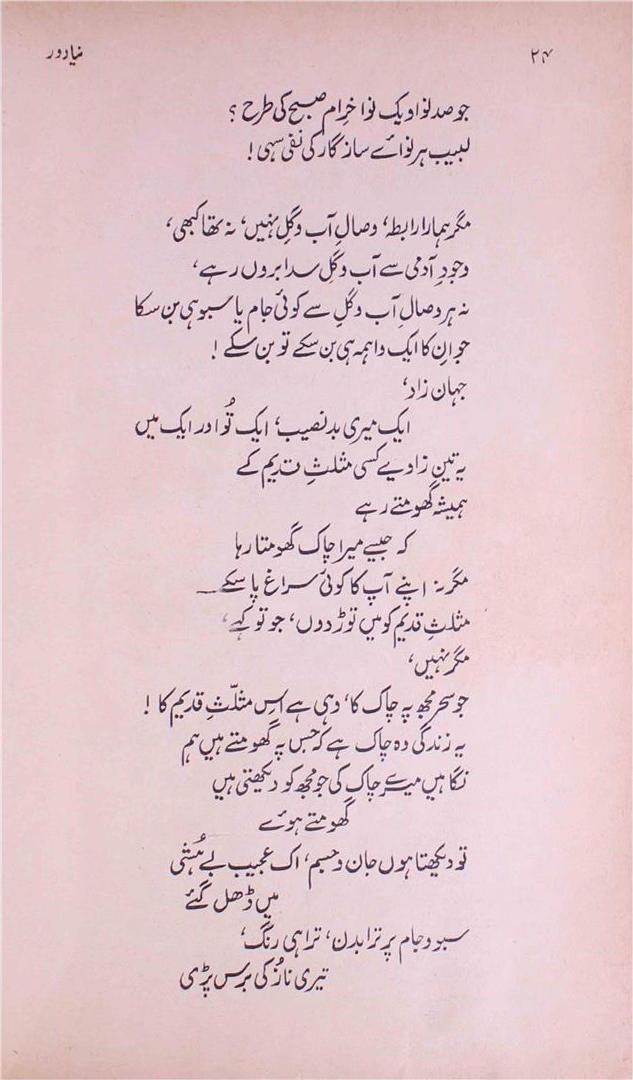 نیا دور
۲۴
جو صد نوا و یک نوا خرام صبح کی طرح ؟
لبیب ہر نوائے ساز گار کی نفی سہی !
مگر ہمارا رابطہ، وصالِ آب و گل نہیں، نہ تھا کبھی،
وجودِ آدمی سے آب و گِل سدا بروں رہے،
نہ ہر وصالِ آب و گل سے کوئی جام یا سبو ہی بن سکا
جو ان کا ایک واہمہ ہی بن سکے تو بن سکے !
جہان زاد،
ایک میری بد نصیب، ایک تُو اور ایک میں
یہ تین زاویے کسی مثلثِ قدیم کے
ہمیشہ گھومتے رہے
کہ جیسے میرا چاک گھومتا رہا
مگر نہ اپنے آپ کا کوئی سراغ پا سکے—
مثلثِ قدیم کو میں توڑ دوں، جو تو کہے،
مگر نہیں،
جو سحر مجھ پہ چاک کا، وہی ہے اس مثلّثِ قدیم کا !
یہ زندگی وہ چاک ہے کہ جس پہ گھومتے ہیں ہم
نگاہیں میرے چاک کی جو مجھ کو دیکھتی ہیں
گھومتے ہوئے
تو دیکھتا ہوں جان و جسم، اک عجیب بے ہُشی
میں ڈھل گئے
سبو و جام پر ترا بدن، ترا ہی رنگ،
تیری نازُکی برس پڑی